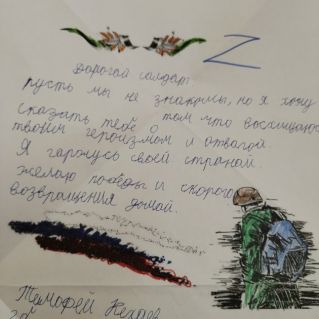 Z
Дорогой солдат.
пусть мы не знакомы, но я хочу
сказать тебе о том что восхищаюсь
твоим героизмом и отвагой.
Я гаржусь своей страной.
желаю победы и скорого
возвращения домой.
Тимофей